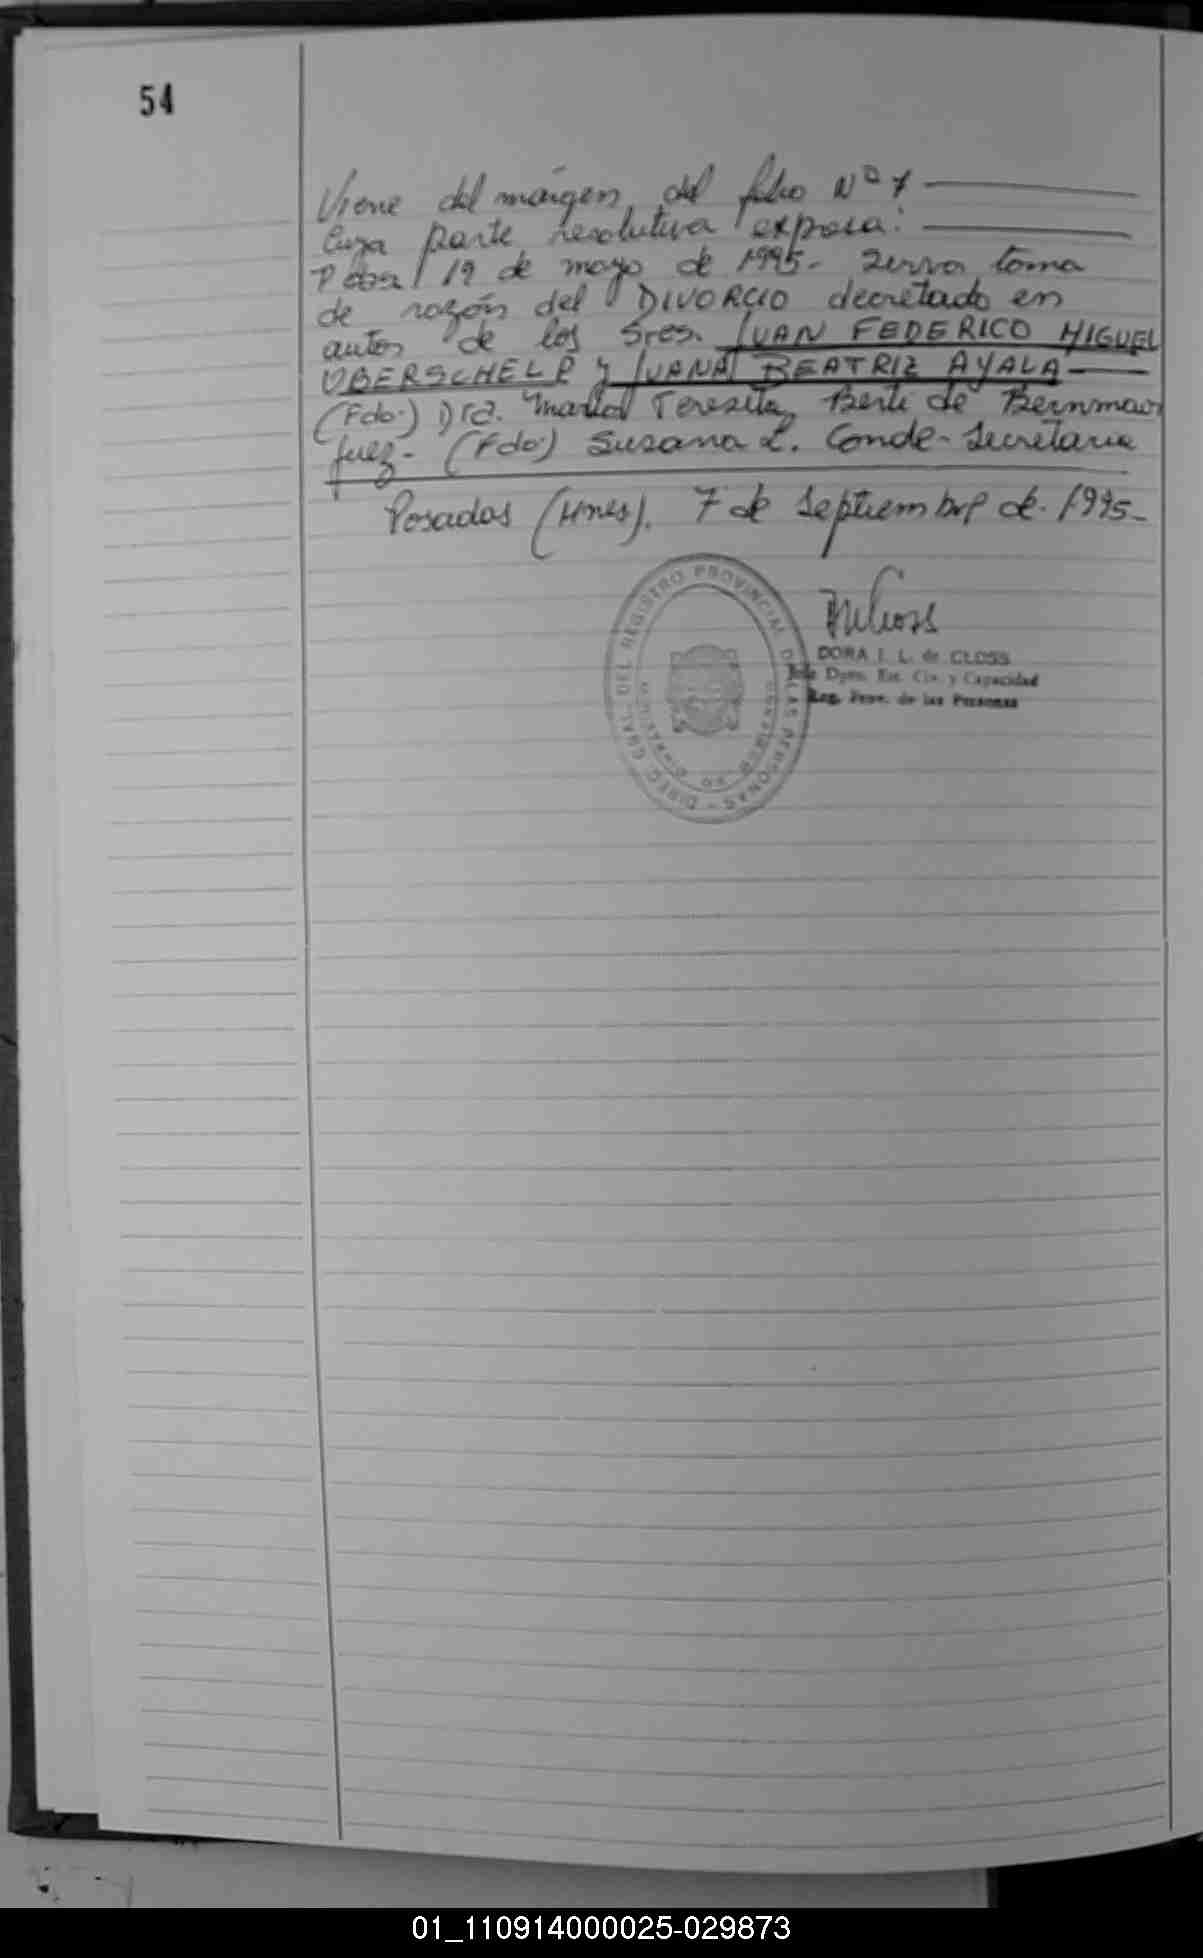 54
Viene del márgen del folio Nº 7
Cuya parte resolutiva expresa:
Posa/ 19 de mayo de 1995- Sirva toma
de razón del DIVORCIO decretado en
autos de los Sres. JUAN FEDERICO MIGUEL
OBERSCHELP y JUANA BEATRIZ AYALA
(Fdo.) Dra. María Teresita Berti de
Juez- (Fdo) Susana L. Conde- Secretaria
Posadas (Mnes). 7 de Septiembre de 1995-
DIREC. GRAL. DEL REGISTRO PROVINCIAL DE LAS PERSONAS
DORA I. L. de CLOSS
Jefe Dpto. Est. Civ. y Capacidad
Reg. Prov. de las Personas
01_110914000025-029873